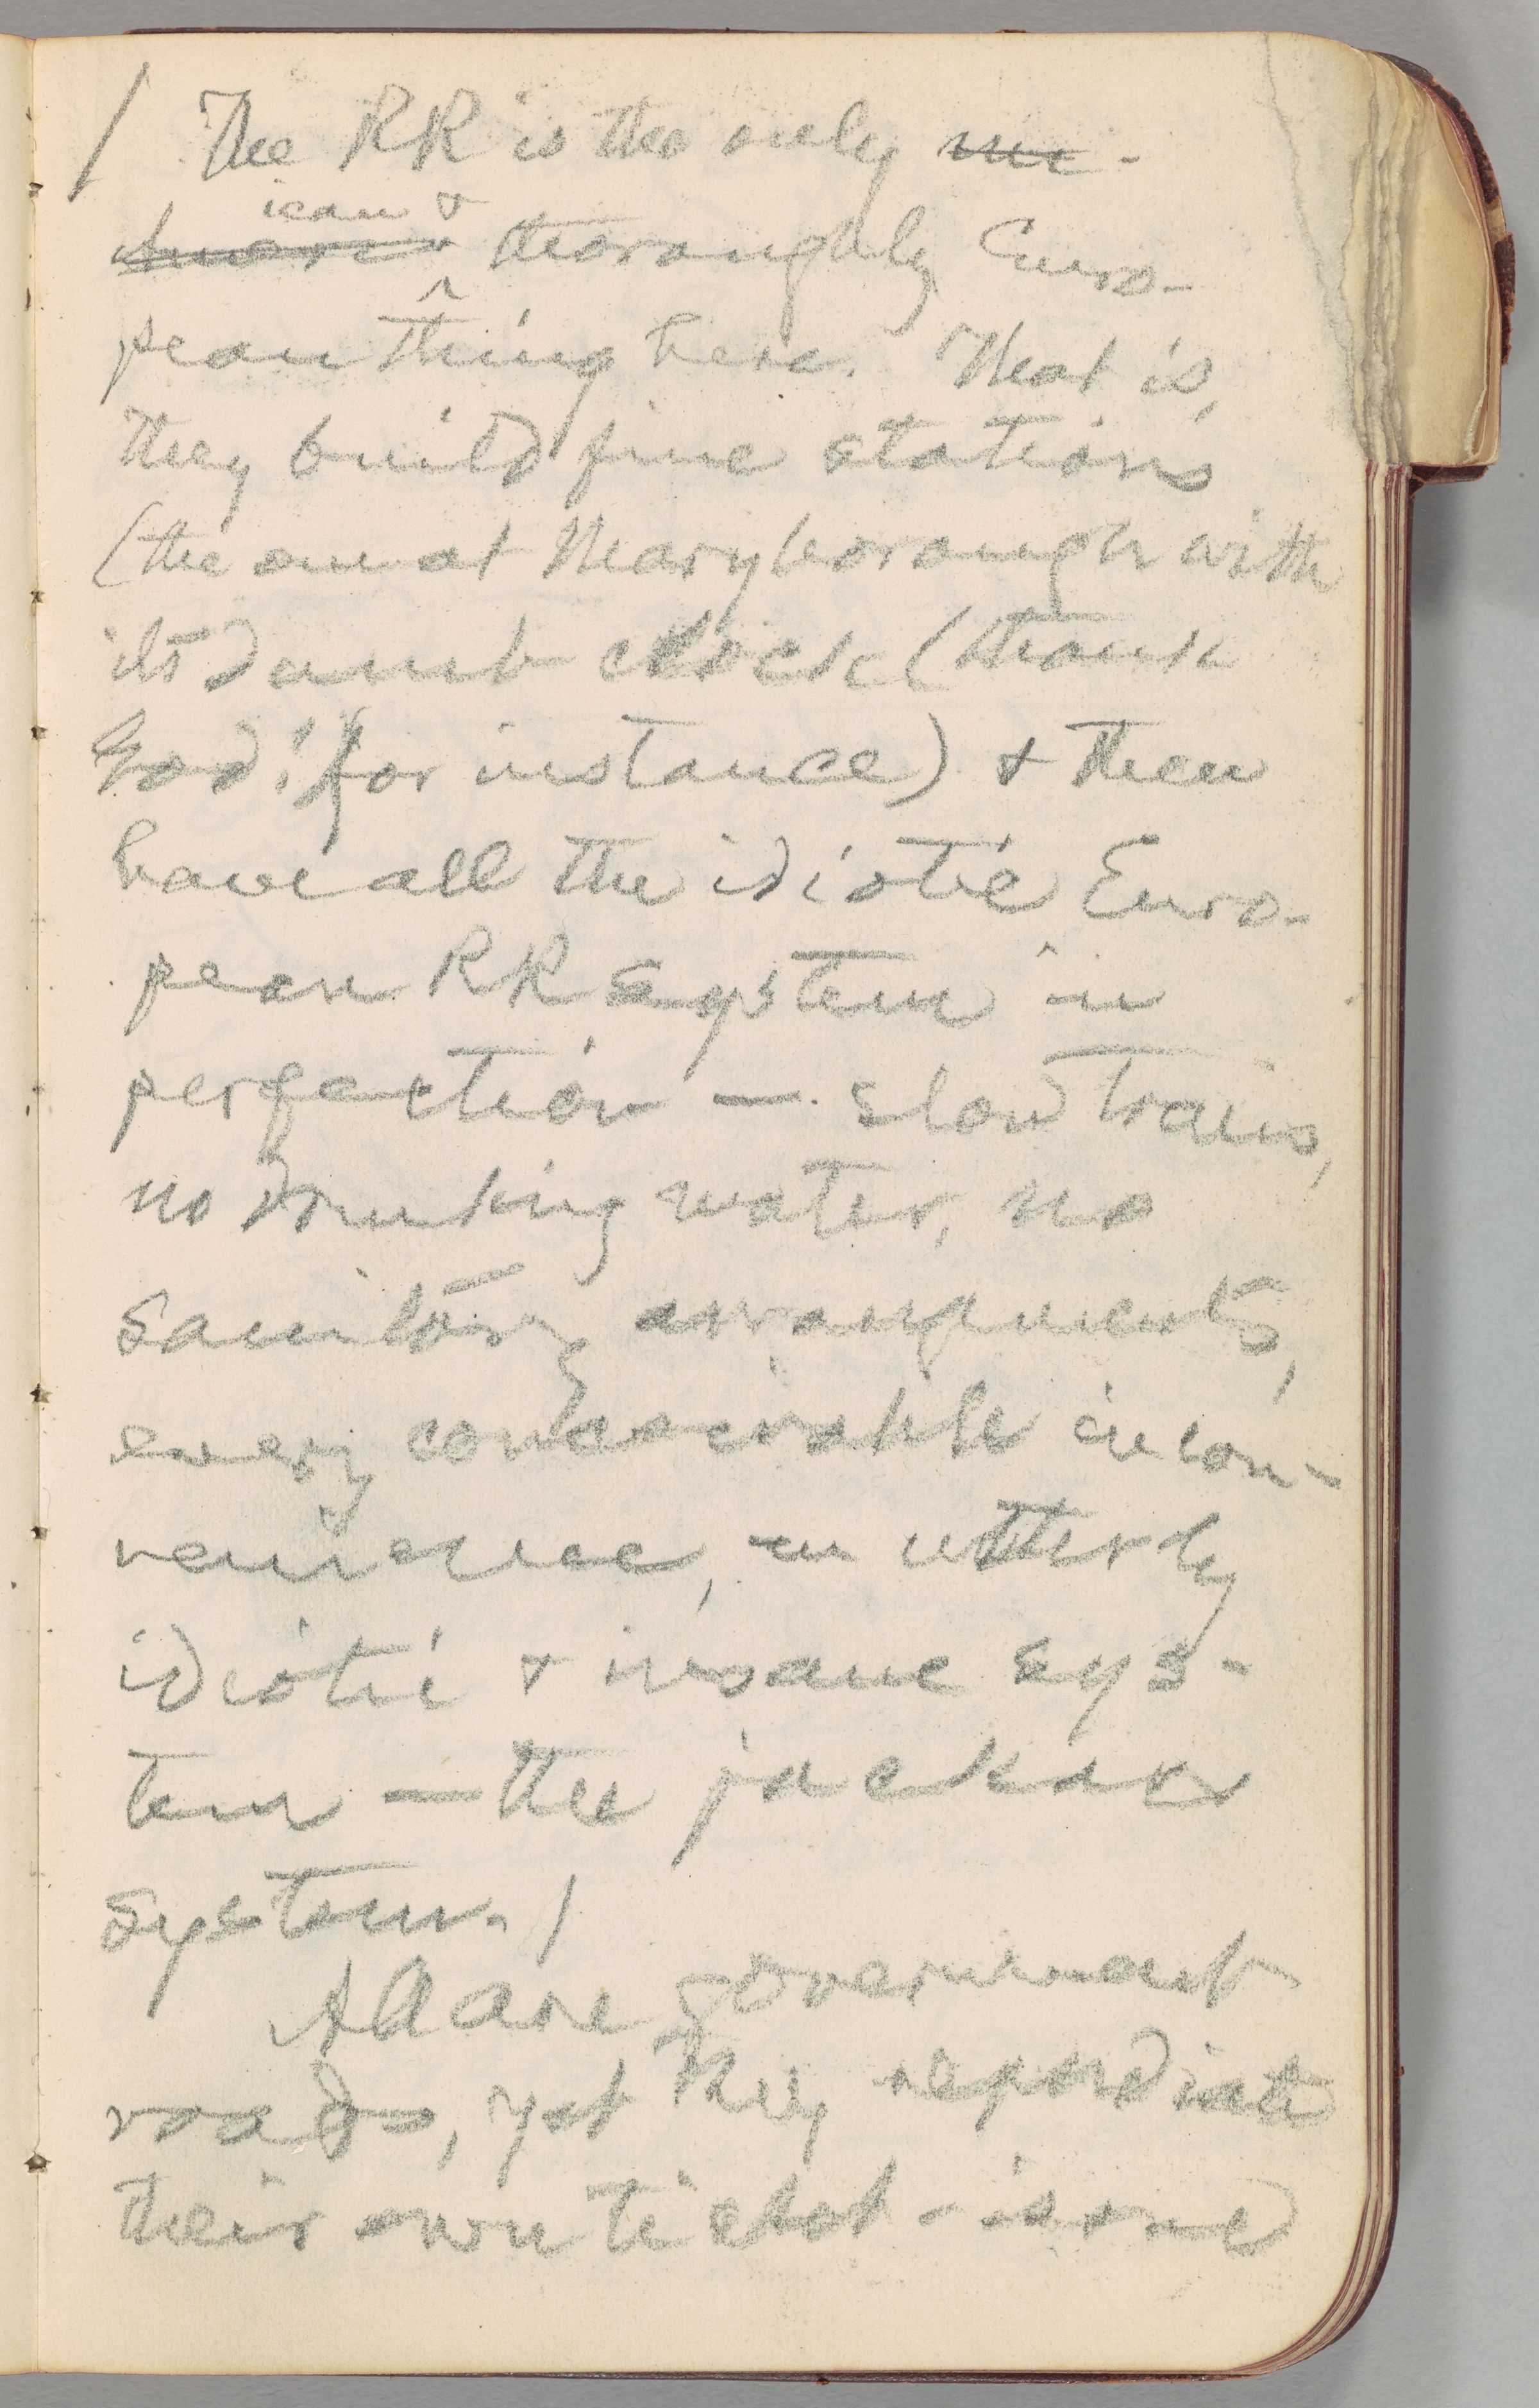 / The RR is the only
ican &
thoroughly Euro-
pean thing here. That is,
they build fine stations
(the one at Maryborough with
its dumb clock (thank
God! for instance) & then
have all the idiotic Euro-
pean RR system in
perfection — slow trains,
no drinking water, no
sanitary arrangements,
every conceivable incon-
venience, an utterly
idiotic & insane sys-
tem — the jackass
system. /
All are government
roads, yet they repudiate
their own ticket - issued